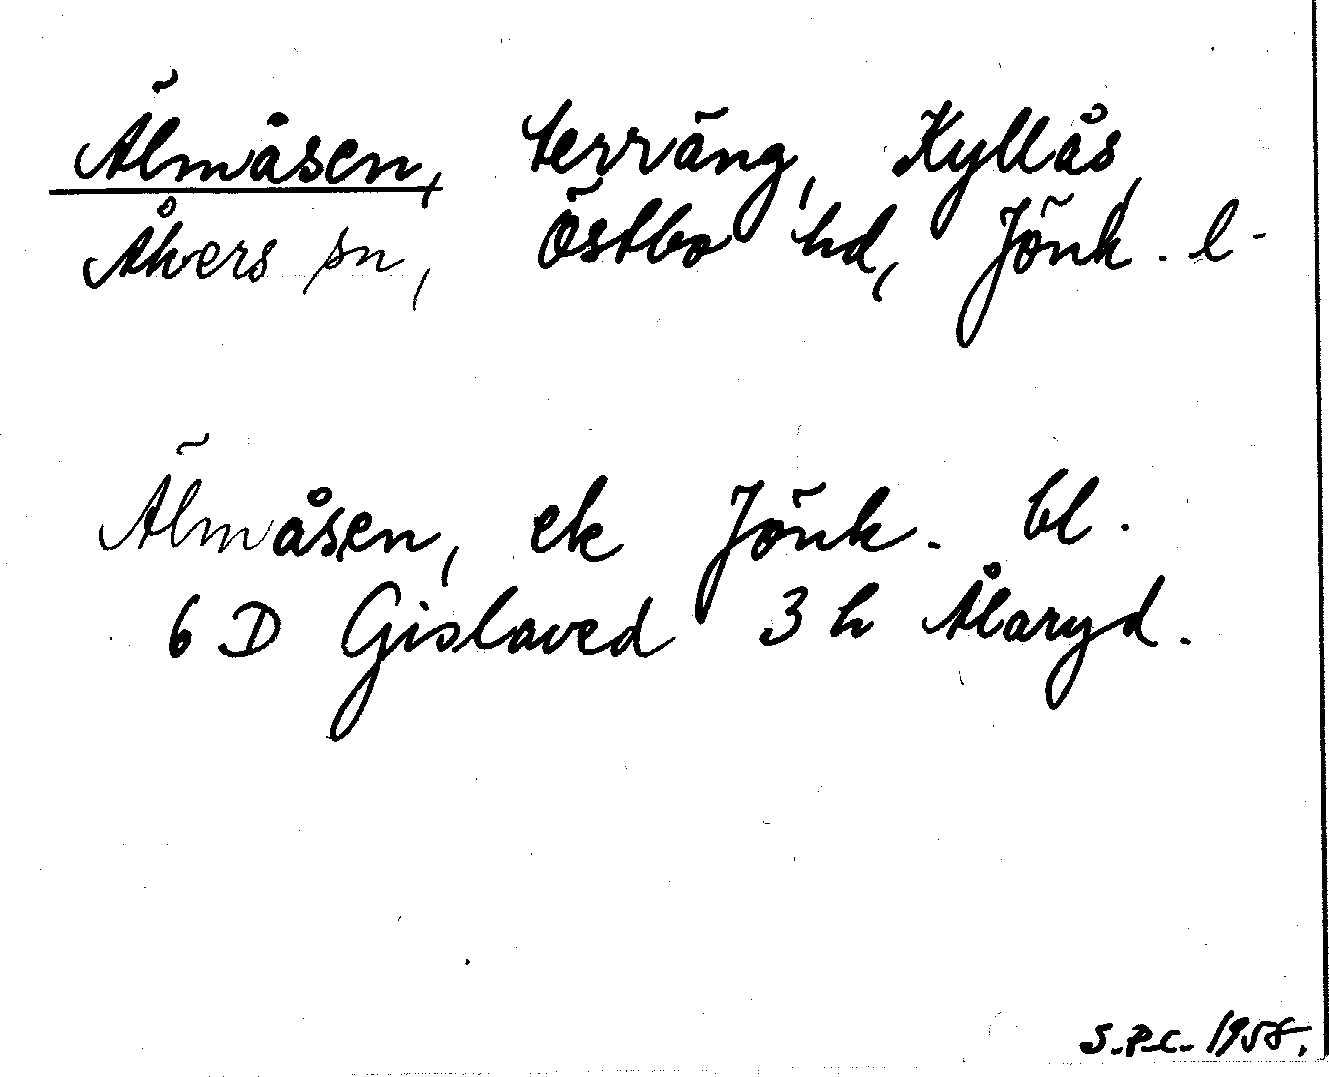 Älmåsen, terräng, Kyllås,
Åkers sn, Östbo hd, Jönk. l-
Älmåsen, ek Jönk. bl.
6 D Gislaved 3 h Ålaryd.
S.P.C. 1958.